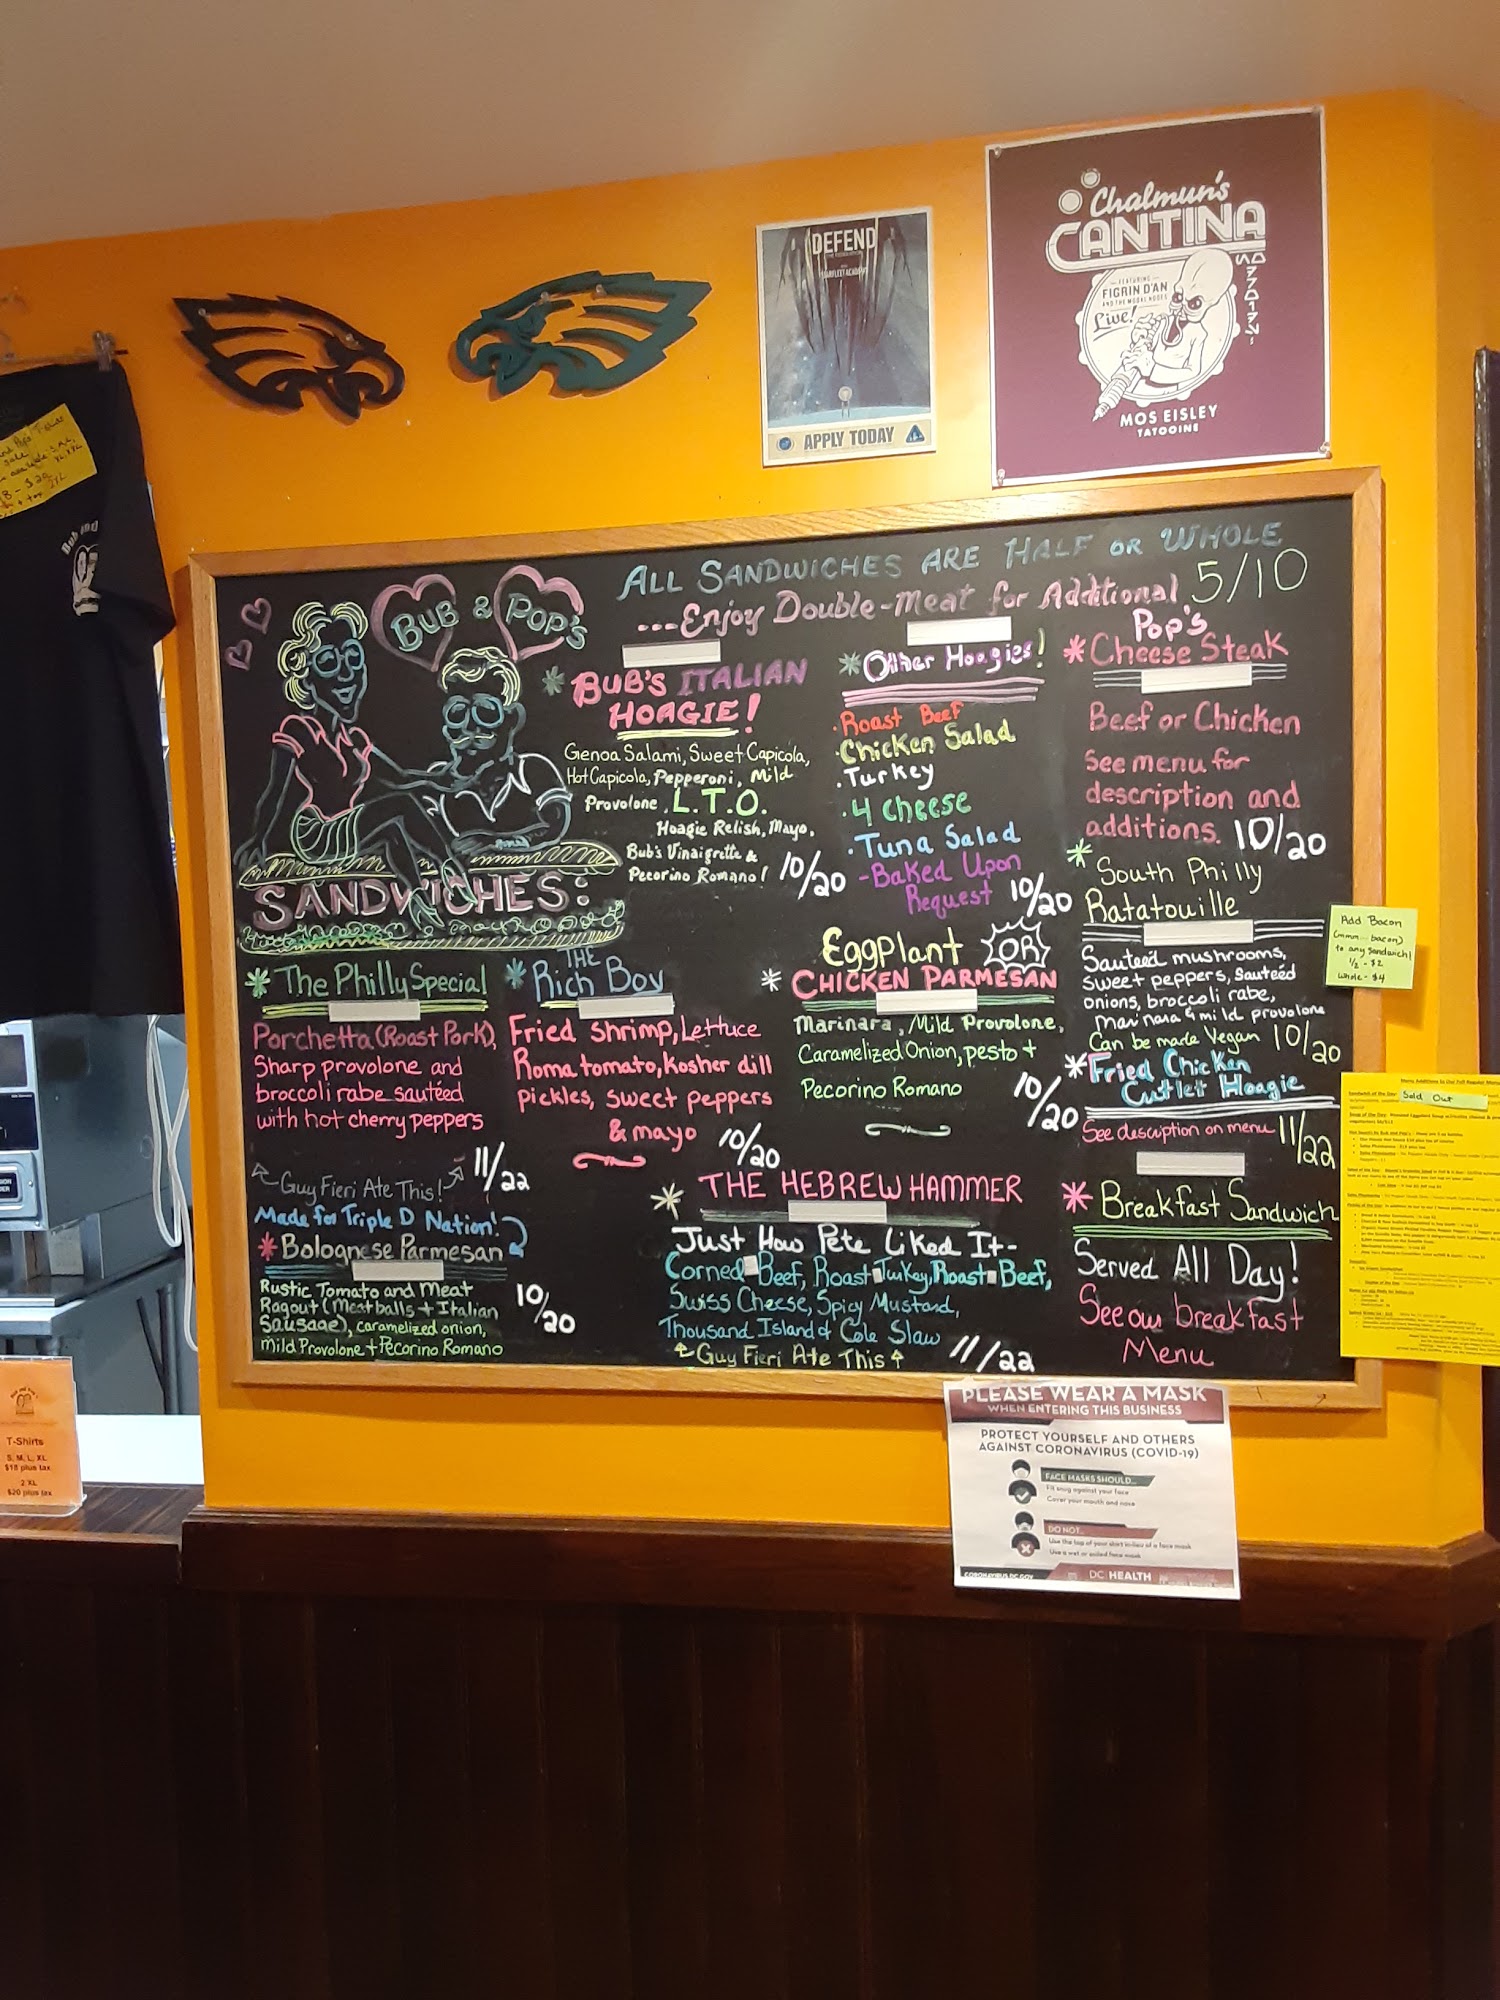 DEFEND
STARFLEET ACADEMY
APPLY TODAY
Chalmun's
CANTINA
SPACEPORT
FEATURING
FIGRIN D'AN
AND THE MODAL NODES
Live!
MOS EISLEY
TATOOINE
ALL SANDWICHES ARE HALF OR WHOLE
...Enjoy Double-Meat for Additional 5/10
BUB & POP'S
SANDWICHES:
*BUB'S ITALIAN
HOAGIE!
Genoa Salami, Sweet Capicola,
Hot Capicola, Pepperoni, Mild
Provolone, L.T.O.
Hoagie Relish, Mayo,
Bub's Vinaigrette &
Pecorino Romano! 10/20
*Other Hoagies!
·Roast Beef
·Chicken Salad
·Turkey
·4 Cheese
·Tuna Salad
-Baked Upon
Request 10/20
Pop's
*Cheese Steak
Beef or Chicken
See menu for
description and
additions. 10/20
*South Philly
Ratatouille
Sauteéd mushrooms,
sweet peppers, sauteéd
onions, broccoli rabe,
marinara & mild provolone
Can be made Vegan 10/20
*The Philly Special
Porchetta (Roast Pork),
Sharp provolone and
broccoli rabe sautéed
with hot cherry peppers
11/22
Guy Fieri Ate This!
*THE
Rich Boy
Fried Shrimp, Lettuce
Roma tomato, kosher dill
pickles, sweet peppers
& mayo 10/20
Eggplant OR
*CHICKEN PARMESAN
Marinara, Mild Provolone,
Caramelized Onion, pesto +
Pecorino Romano
10/20
*Fried Chicken
Cutlet Hoagie
See description on menu 11/22
Made for Triple D Nation!
*Bolognese Parmesan
Rustic Tomato and Meat
Ragout (Meatballs + Italian
Sausage), caramelized onion,
Mild Provolone + Pecorino Romano
10/20
*THE HEBREW HAMMER
Just How Pete Liked It-
Corned Beef, Roast Turkey, Roast Beef,
Swiss Cheese, Spicy Mustard,
Thousand Island & Cole Slaw
Guy Fieri Ate This 11/22
*Breakfast Sandwich
Served All Day!
See our breakfast
Menu
Add Bacon
(mmm... bacon)
to any sandwich!
1/2 - $2
whole - $4
Sold Out
T-Shirts
S, M, L, XL
$18 plus tax
2 XL
$20 plus tax
PLEASE WEAR A MASK
WHEN ENTERING THIS BUSINESS
PROTECT YOURSELF AND OTHERS
AGAINST CORONAVIRUS (COVID-19)
FACE MASKS SHOULD...
Fit snug against your face
Cover your mouth and nose
DO NOT...
Use the top of your shirt in lieu of a face mask
Use a wet or soiled face mask
CORONAVIRUS.DC.GOV
DC HEALTH